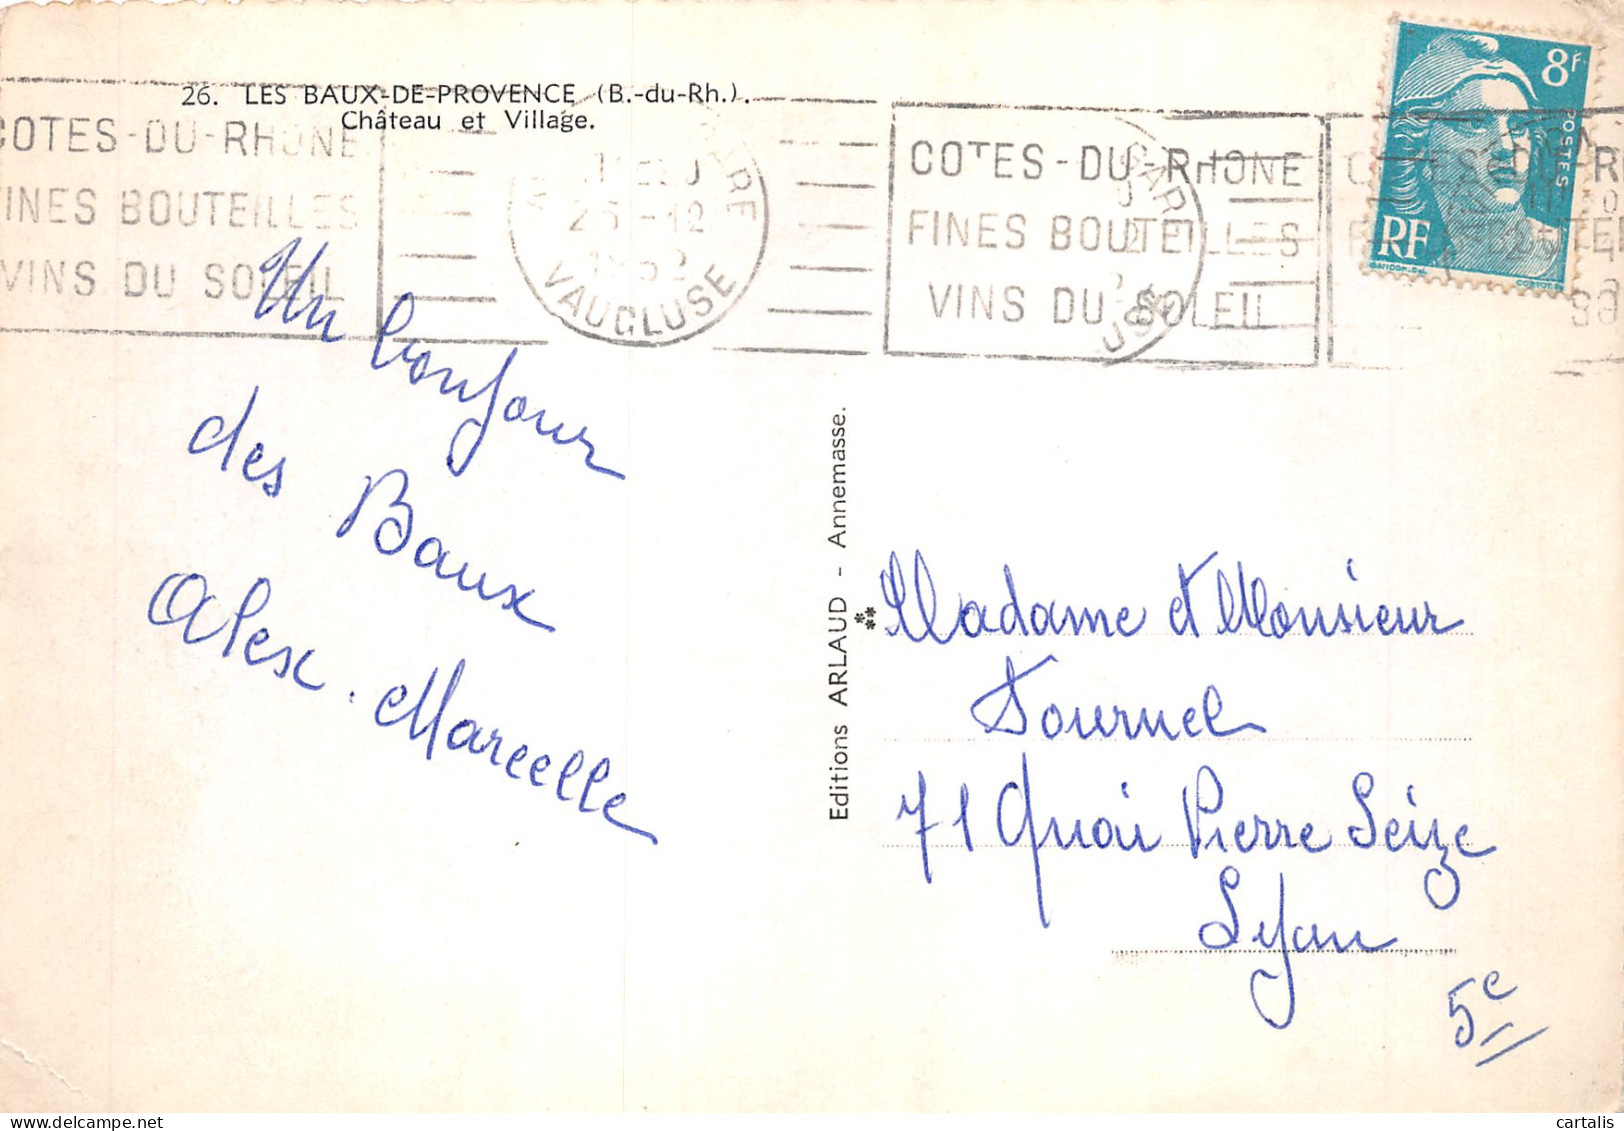 26. LES BAUX-DE-PROVENCE (B.-du-Rh.).
Château et Village.
COTES-DU-RHONE
FINES BOUTEILLES
VINS DU SOLEIL
GARE
25-12
1952
VAUCLUSE
COTES-DU-RHONE
FINES BOUTEILLES
VINS DU SOLEIL
8F
POSTES
RF
GANDON-DEL
CORTOT-SC
Un bonjour
des Baux
Alex. Marcelle
Editions ARLAUD - Annemasse.
Madame et Monsieur
Tournel
71 Quai Pierre Seize
Lyon
5e
cartalis